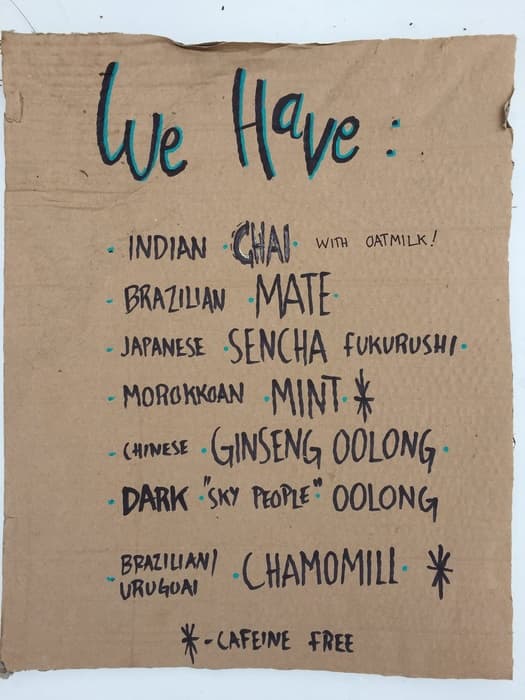 We Have :
· INDIAN · CHAI · WITH OATMILK!
· BRAZILIAN · MATE ·
· JAPANESE · SENCHA FUKURUSHI ·
· MOROKKOAN · MINT · *
· CHINESE · GINSENG OOLONG ·
· DARK "SKY PEOPLE" OOLONG
· BRAZILIAN/
URUGUAI · CHAMOMILL · *
* - CAFEINE FREE